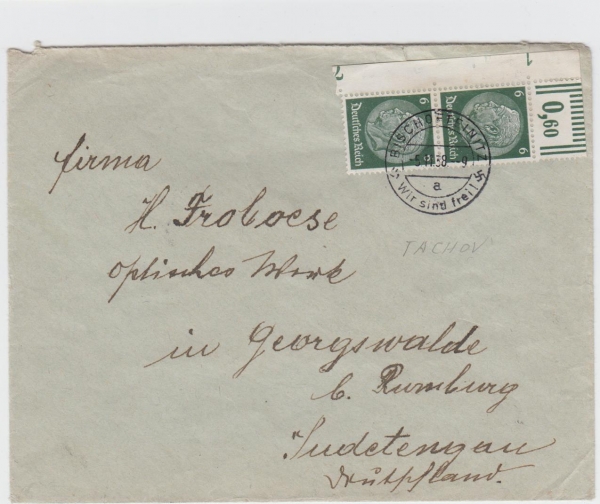 2
1
0,60
6
Deutsches Reich
6
Deutsches Reich
6
BISCHOFTEINITZ
-5.11.38 -9
a
Wir sind frei!
TACHOV
Firma
H. Froboese
Optisches Werk
in Georgswalde
b. Rumburg
Sudetengau
Deutschland.